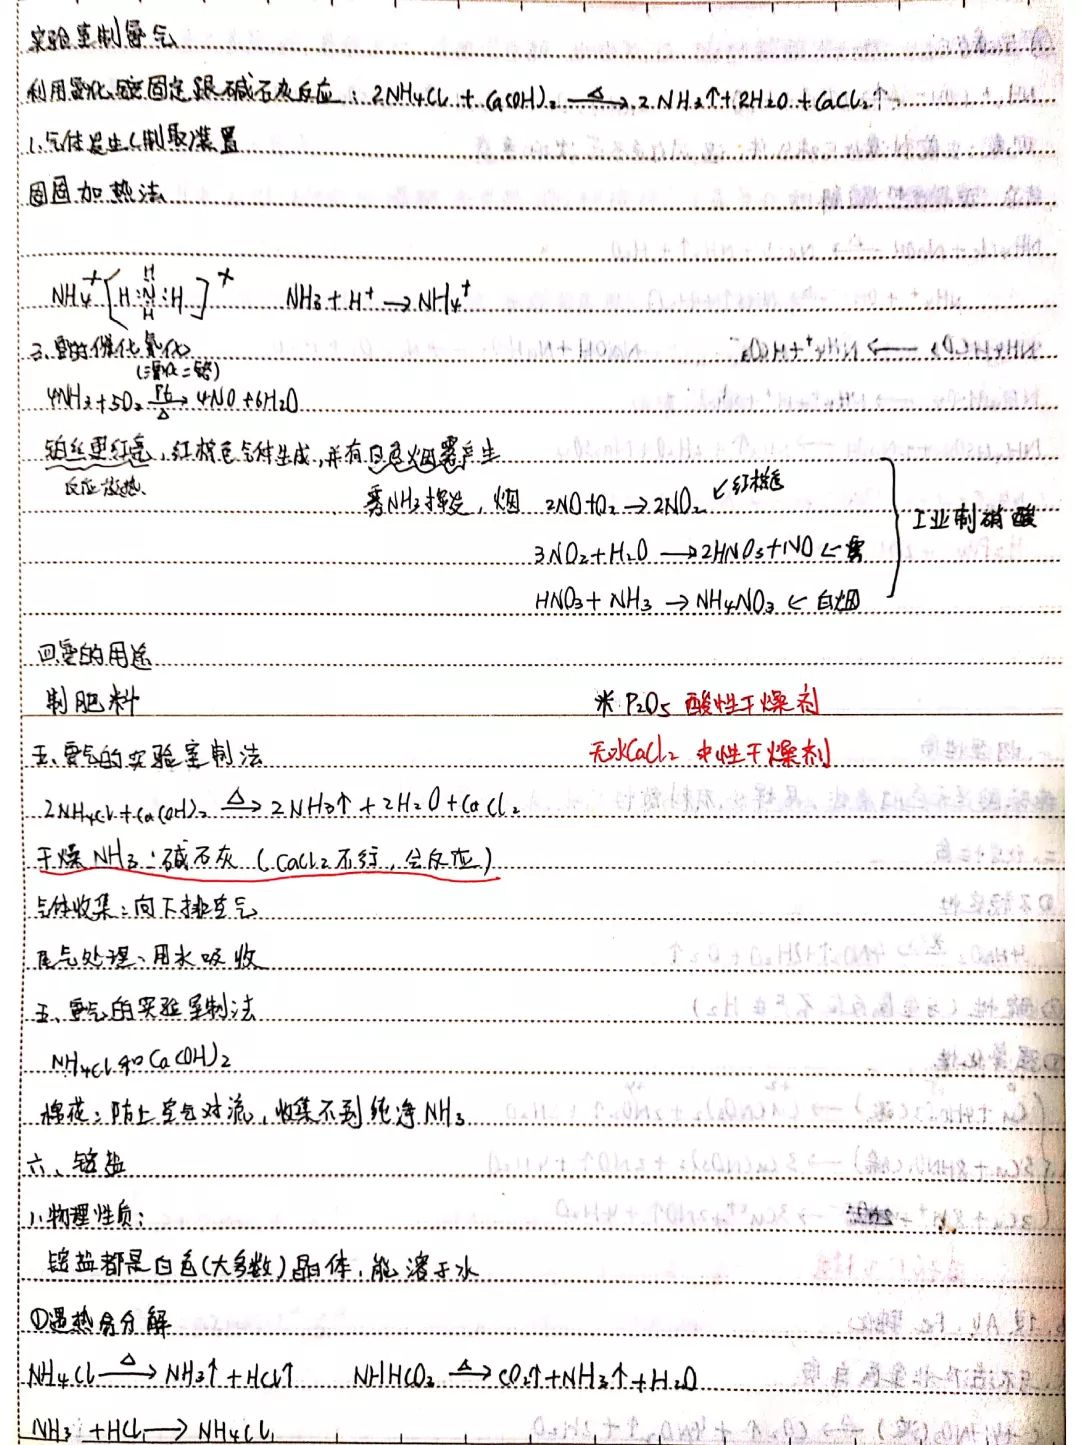 实验室制氨气
利用氯化铵固定跟碱石灰反应：2NH₄Cl + Ca(OH)₂ —△→ 2NH₃↑+2H₂O+CaCl₂↑
1、气体发生(制取)装置
固固加热法
NH₄⁺[H:N:H]⁺ NH₃+H⁺→NH₄⁺
H
H
三、氨的催化氧化
4NH₃+5O₂ —Pt/△→ 4NO+6H₂O
铂丝更红亮，红棕色气体生成，并有白色烟雾产生
反应放热
雾NH₃挥发，烟 2NO+O₂→2NO₂ ↙红棕色
工业制硝酸
3NO₂+H₂O→2HNO₃+NO ←雾
HNO₃+NH₃→NH₄NO₃ ←白烟
四氨的用途
制肥料 米 P₂O₅ 酸性干燥剂
五、氨气的实验室制法 无水CaCl₂ 中性干燥剂
2NH₄Cl+Ca(OH)₂ —△→ 2NH₃↑+2H₂O+CaCl₂
干燥NH₃：碱石灰（CaCl₂不行，会反应）
气体收集：向下排空气
尾气处理、用水吸收
五、氨气的实验室制法
NH₄Cl和Ca(OH)₂
棉花：防止空气对流，收集不到纯净NH₃
六、铵盐
1、物理性质：
铵盐都是白色(大多数)晶体，能溶于水
①遇热易分解
NH₄Cl —△→ NH₃↑+HCl↑ NHHCO₃ —△→ CO₂↑+NH₃↑+H₂O
NH₃+HCl→NH₄Cl